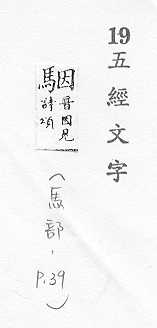 19五經文字
駰音因見
詩頌
（馬部，P.39）